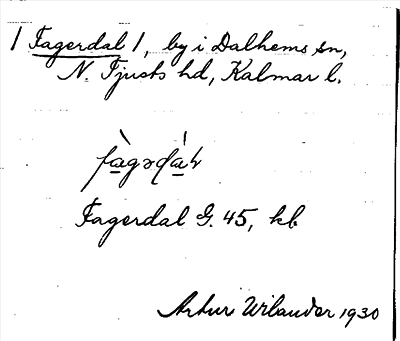 1 Fagerdal 1, by i Dalhems sn,
N. Tjusts hd, Kalmar l.
fà̲gədà̲ɫ
Fagerdal G. 45, kb
Artur Wilander 1930